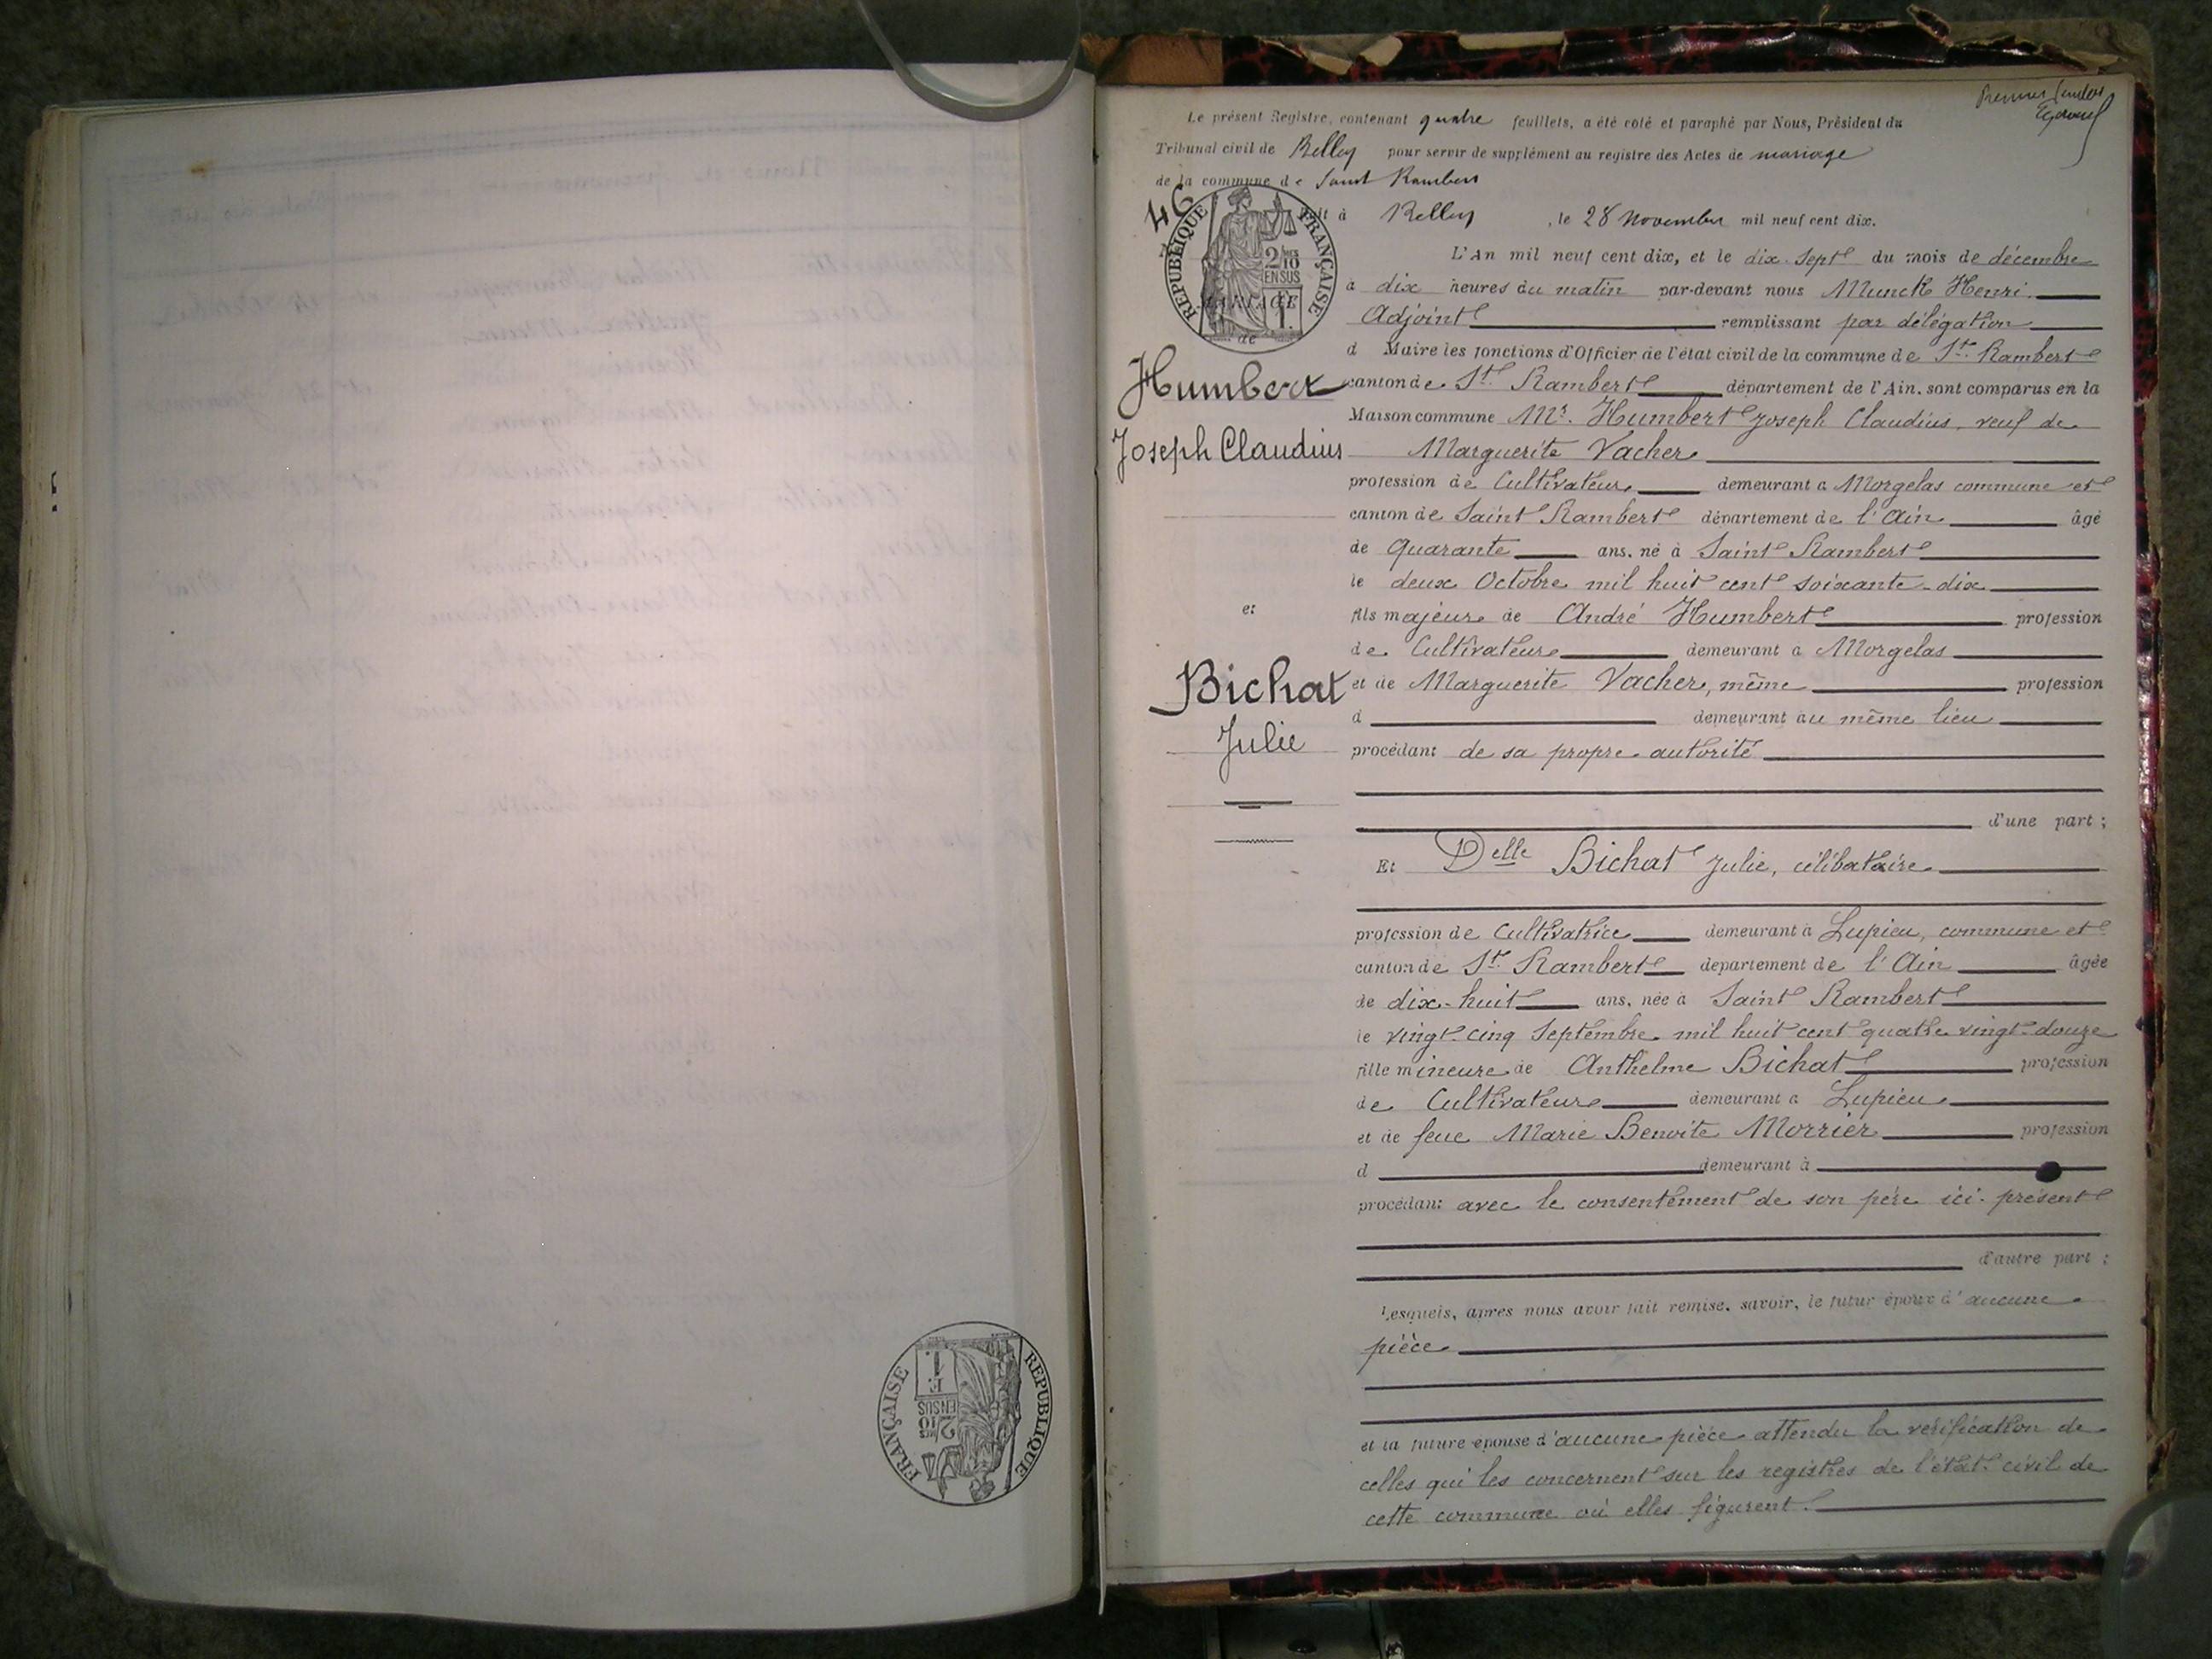 Premier feuillet
Le présent Registre, contenant quatre feuillets, a été coté et paraphé par Nous, Président du
Tribunal civil de Belley pour servir de supplément au registre des Actes de mariage
de la commune de Saint Rambert
46
fait à Belley, le 28 novembre mil neuf cent dix.
RÉPUBLIQUE FRANÇAISE
2/10 EN SUS
1 F.
MARIAGE
de
L'An mil neuf cent dix, et le dix-sept du mois de décembre
à dix heures du matin par-devant nous Munck Henri
Adjoint remplissant par délégation
d Maire les fonctions d'Officier de l'état civil de la commune de St. Rambert
Humbert
canton de St. Rambert département de l'Ain, sont comparus en la
Maison commune Mr. Humbert Joseph Claudius, veuf de
Joseph Claudius
Marguerite Vacher
profession de Cultivateur demeurant à Morgelas commune et
canton de Saint Rambert département de l'Ain âgé
de quarante ans, né à Saint Rambert
le deux Octobre mil huit cent soixante-dix
et
fils majeur de André Humbert profession
de Cultivateur demeurant à Morgelas
Bichat
et de Marguerite Vacher, même profession
d demeurant au même lieu
Julie
procédant de sa propre autorité
d'une part ;
Et Delle Bichat Julie, célibataire
profession de Cultivatrice demeurant à Lupieu, commune et
canton de St. Rambert département de l'Ain âgée
de dix-huit ans, née à Saint Rambert
le vingt-cinq Septembre mil huit cent quatre vingt-douze
fille mineure de Anthelme Bichat profession
de Cultivateur demeurant à Lupieu
et de feue Marie Benoite Morrier profession
d demeurant à
procédant avec le consentement de son père ici présent
d'autre part ;
Lesquels, après nous avoir fait remise, savoir, le futur époux d'aucune
pièce
et la future épouse d'aucune pièce attendu la vérification de
celles qui les concernent sur les registres de l'état-civil de
cette commune où elles figurent.
RÉPUBLIQUE FRANÇAISE
2/10 EN SUS
1 F.